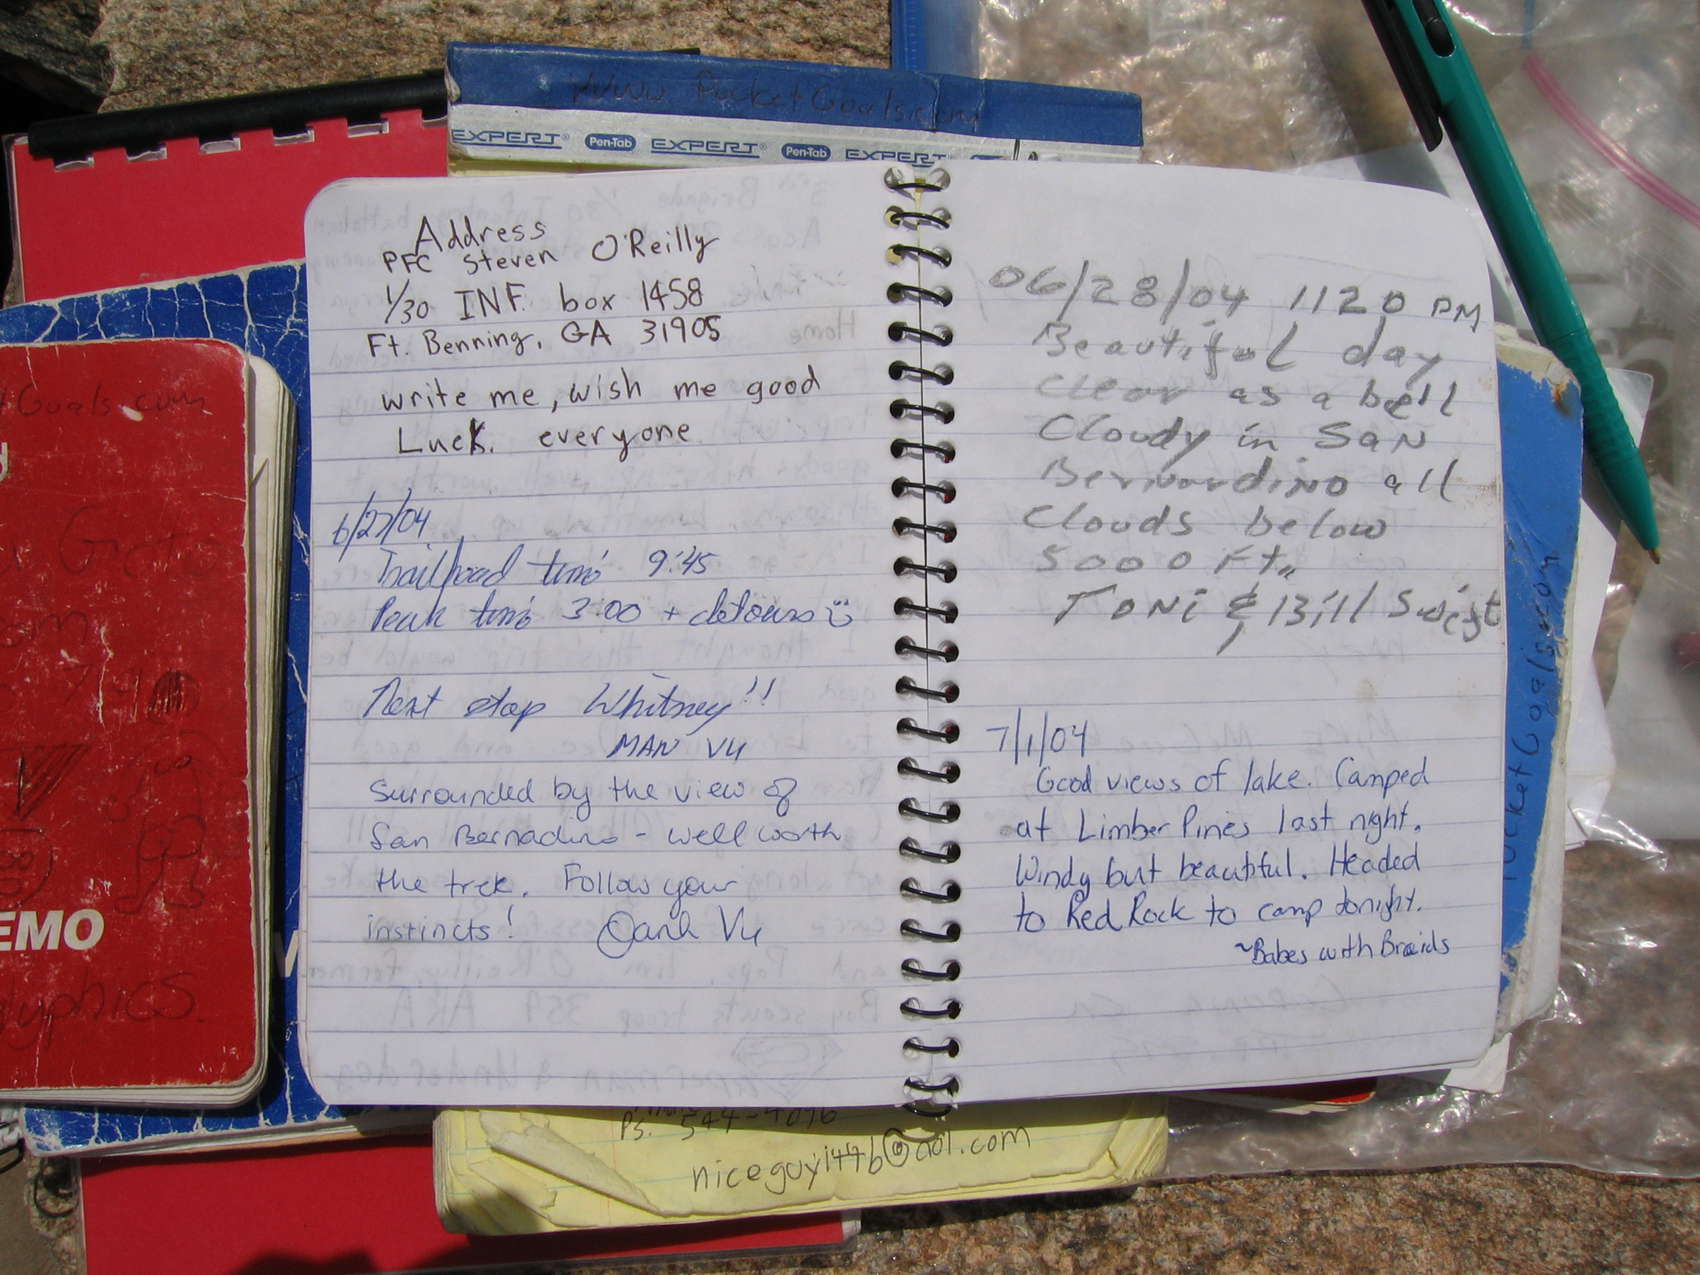 www PocketGoals.com
EXPERT Pen-Tab EXPERT Pen-Tab EXPERT
Address
PFC Steven O'Reilly
1/30 INF. box 1458
Ft. Benning, GA 31905
write me, wish me good
Luck. everyone
6/27/04
Trailhead time 9:45
Peak time 3:00 + detours
Next stop Whitney!!
MAN VU
Surrounded by the view of
San Bernadino - well worth
the trek. Follow your
instincts! Oanh Vu
06/28/04 1120 PM
Beautiful day
clear as a bell
Cloudy in SaN
Bernardino all
Clouds below
5000 Ft.
TONi & Bill
7/1/04
Good views of lake. Camped
at Limber Pines last night.
Windy but beautiful. Headed
to Red Rock to camp tonight.
~Babes with Braids
Goals.com
EMO
glyphics.
PocketGoals.com
Ps. 544-4096
@aol.com